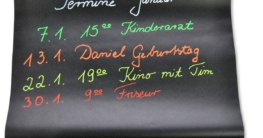 Termine Januar
7.1. 15⁰⁰ Kinderarzt
13.1. Daniel Geburtstag
22.1. 19⁰⁰ Kino mit Tim
30.1. 9⁰⁰ Friseur